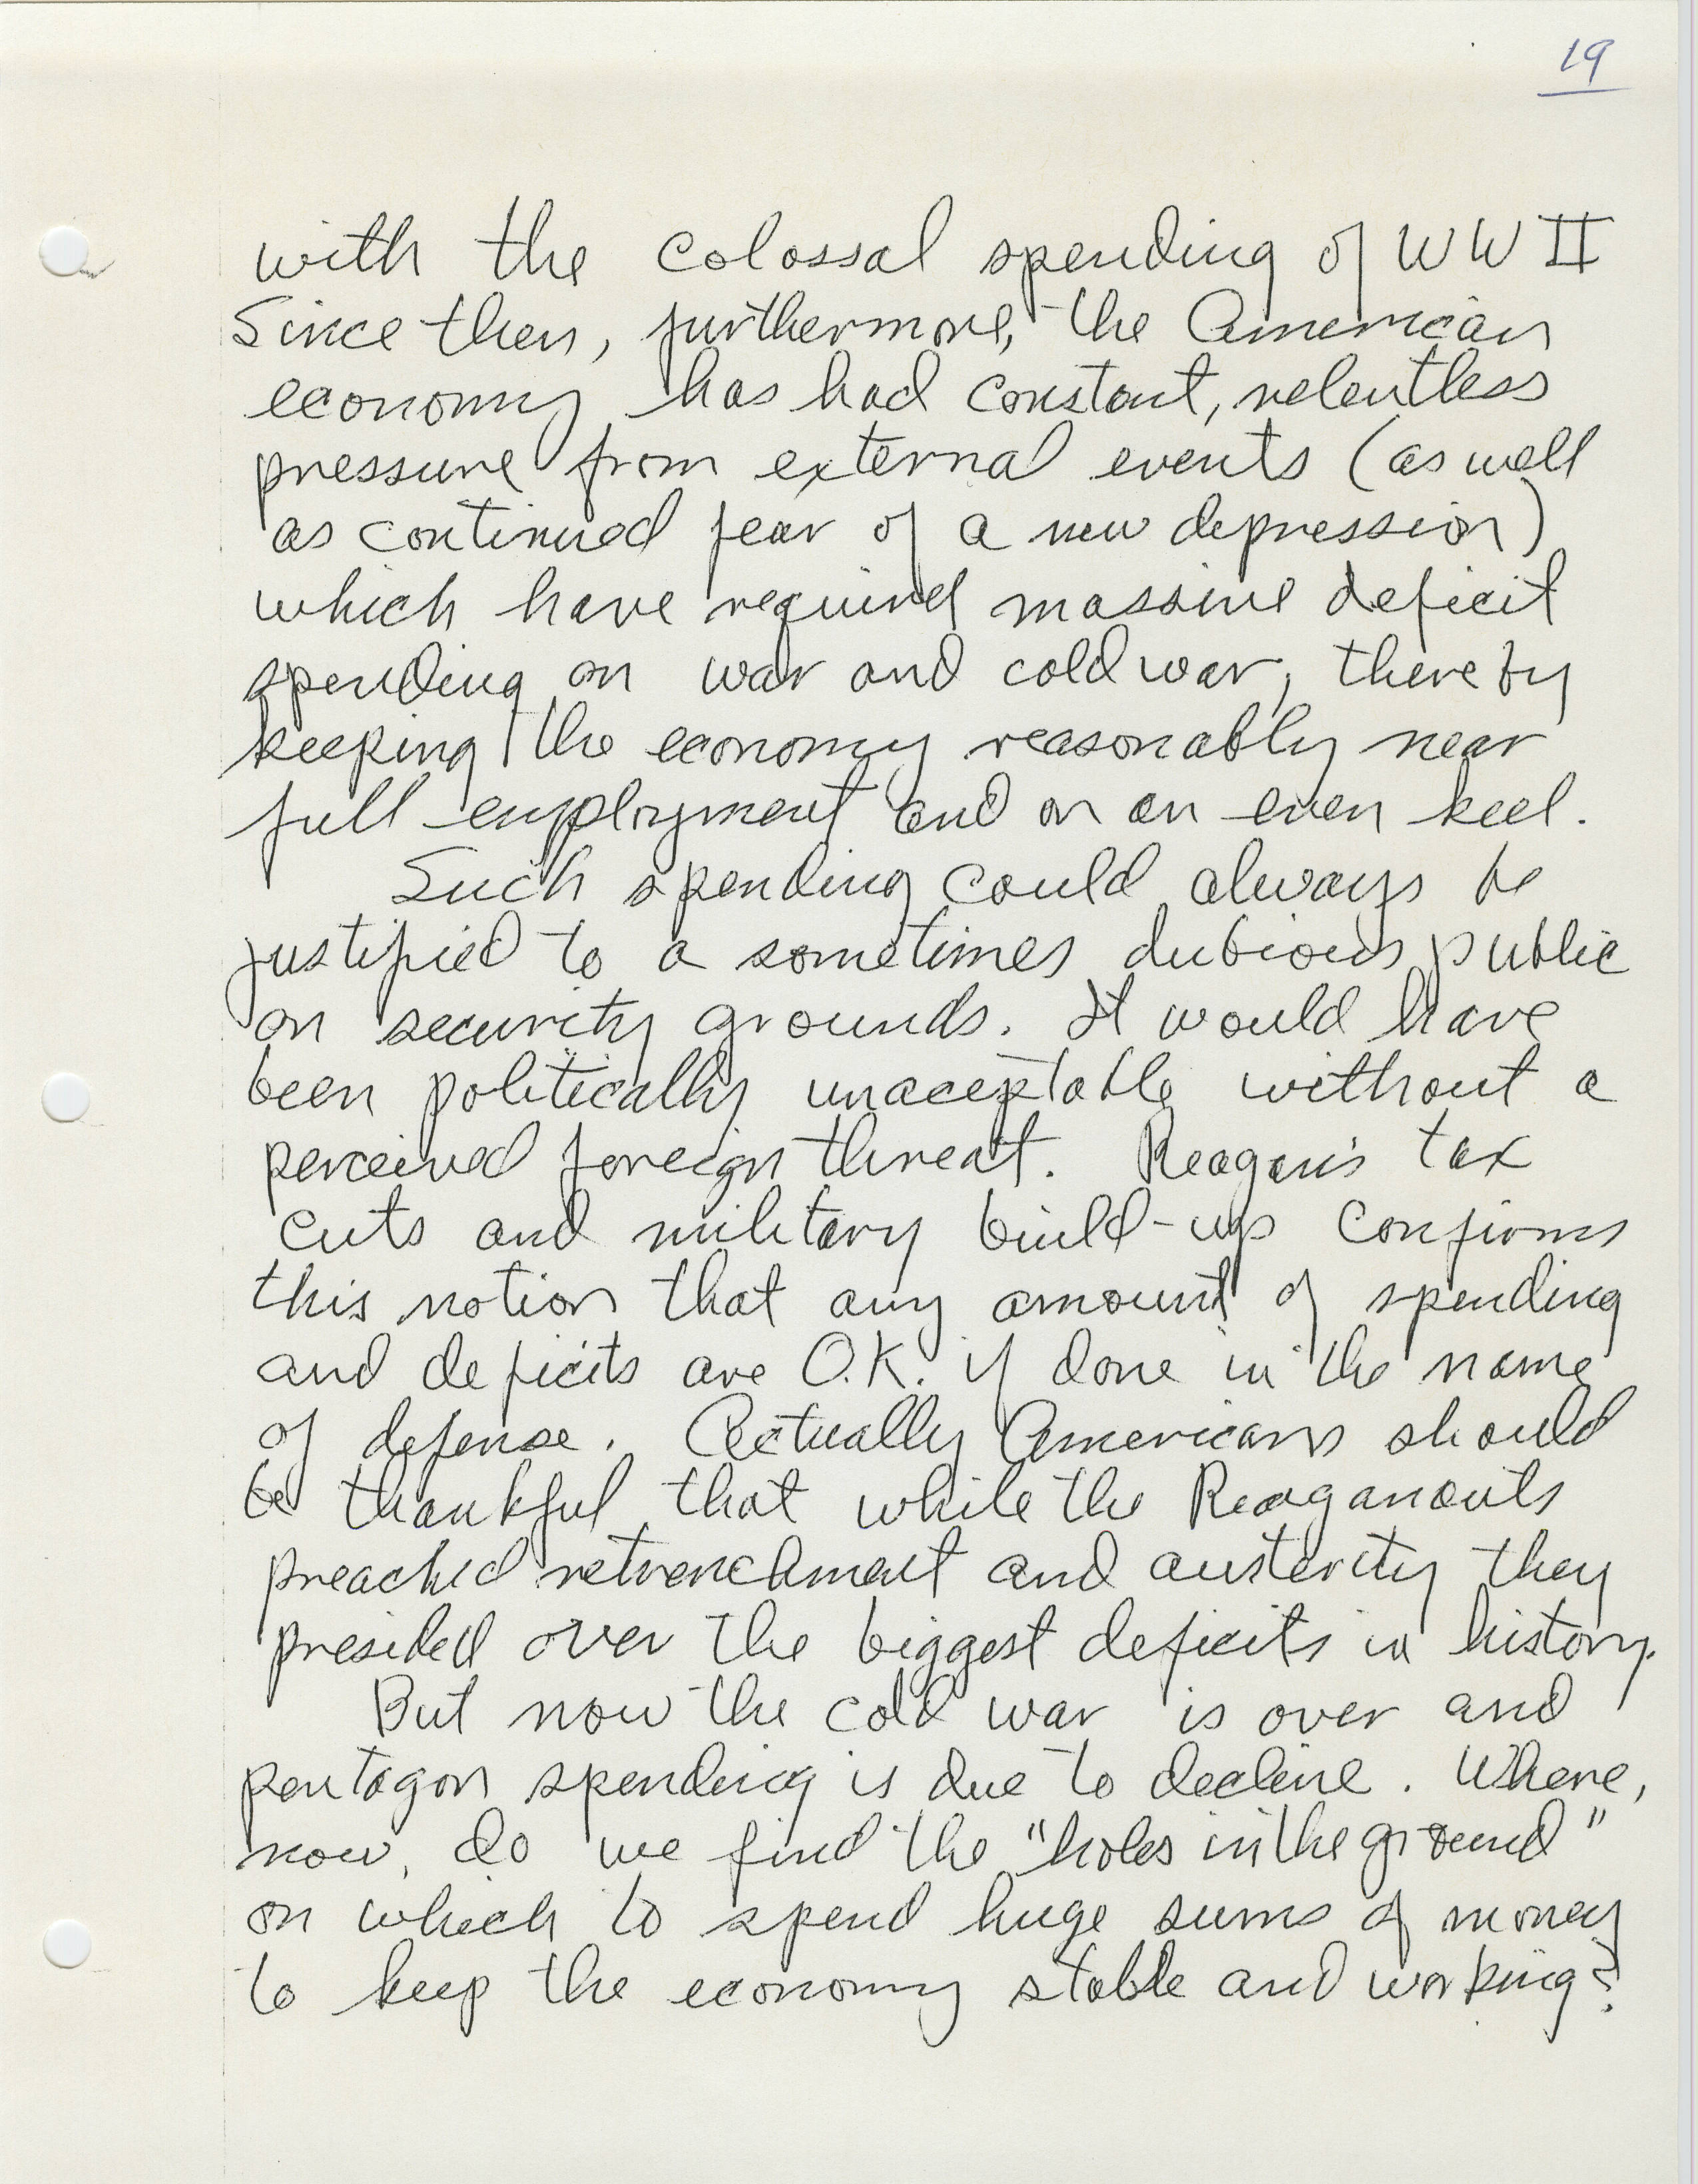 19
with the colossal spending of WW II
Since then, furthermore, the American
economy has had constant, relentless
pressure from external events (as well
as continued fear of a new depression)
which have required massive deficit
spending on war and cold war, thereby
keeping the economy reasonably near
full employment and on an even keel.
Such spending could always be
justified to a sometimes dubious public
on security grounds. It would have
been politically unacceptable without a
perceived foreign threat. Reagan's tax
cuts and military build-up confirms
this notion that any amount of spending
and deficits are O.K. if done in the name
of defense. Actually Americans should
be thankful that while the Reaganauts
preached retrenchment and austerity they
presided over the biggest deficits in history.
But now the cold war is over and
pentagon spending is due to decline. Where,
now, do we find the "holes in the ground"
on which to spend huge sums of money
to keep the economy stable and working?